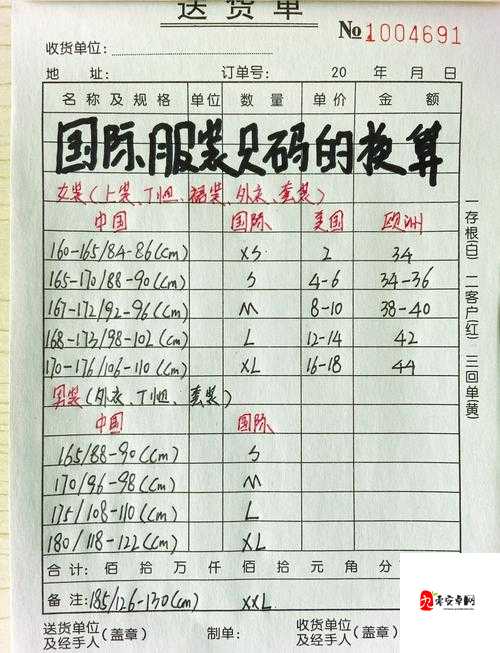 送货单
№1004691
收货单位:
地 址: 订单号: 20 年 月 日
名称及规格 单位 数量 单价 金额
国际服装尺码的换算
女装(上装、T恤、裙装、外衣、套装)
中国 国际 美国 欧洲
160-165/84-86(cm) XS 2 34
165-170/88-90(cm) S 4-6 34-36
167-172/92-96(cm) M 8-10 38-40
168-173/98-102(cm) L 12-14 42
170-176/106-110(cm) XL 16-18 44
男装(外衣、T恤、套装)
中国 国际
165/88-90(cm) S
170/96-98(cm) M
175/108-110(cm) L
180/118-122(cm) XL
合计: 佰 拾 万 仟 佰 拾 元 角 分
备注: 185/126-130(cm) XXL
送货单位及经手人(盖章) 制单: 收货单位及经手人(盖章)
一存根(白) 二客户(红) 三回单(黄)
零安卓网